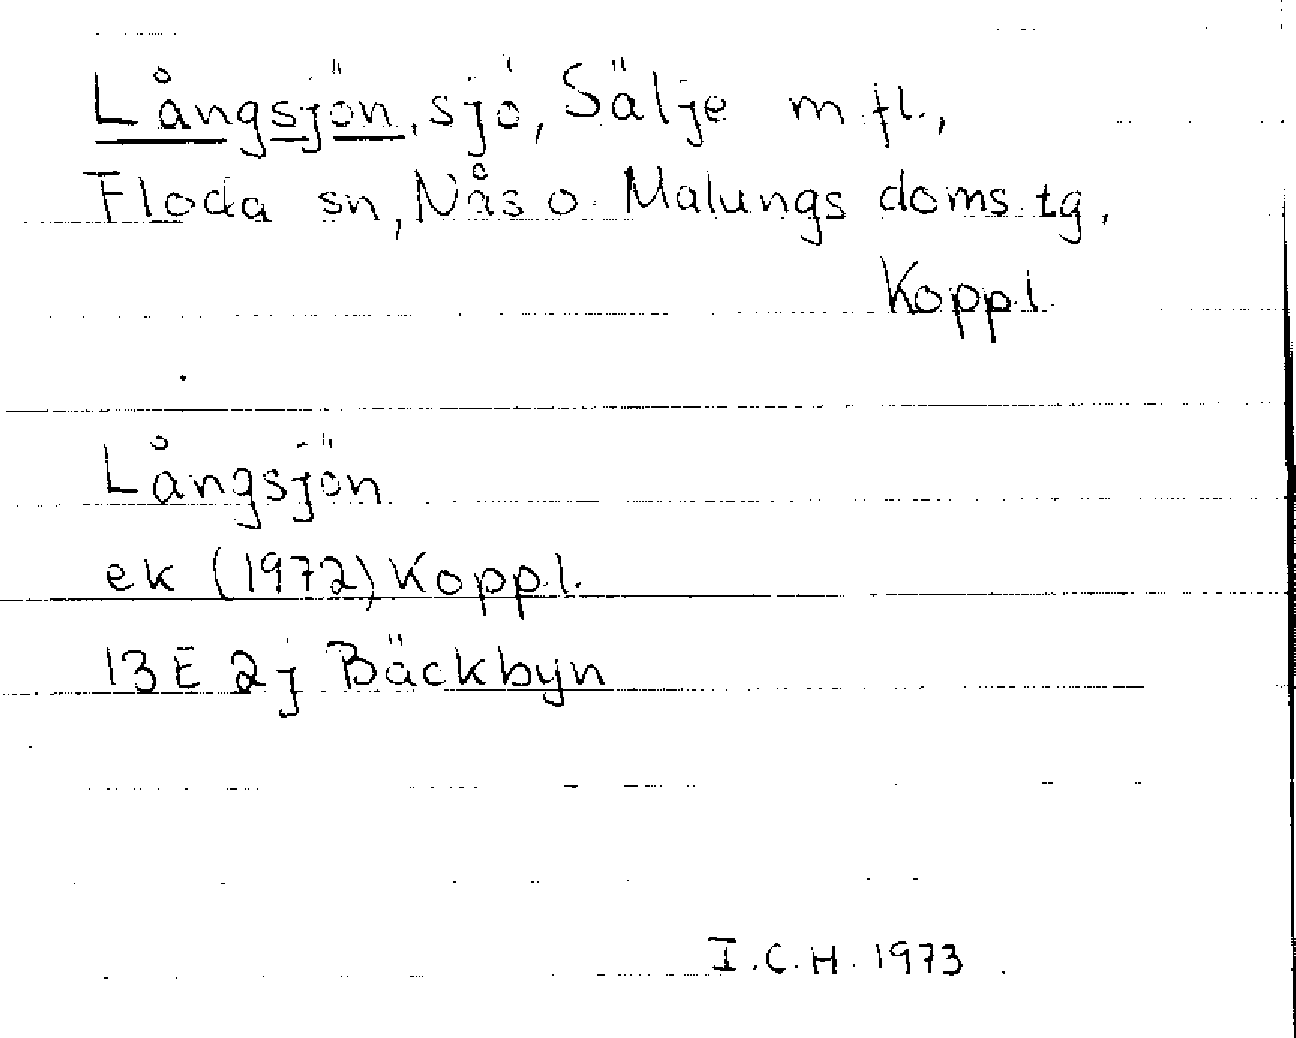 Långsjön, sjö, Sälje m.fl.,
Floda sn, Nås o. Malungs doms.tg.
Koppl.
Långsjön
ek (1972) Koppl.
13E 2j Bäckbyn
I.C.H. 1973